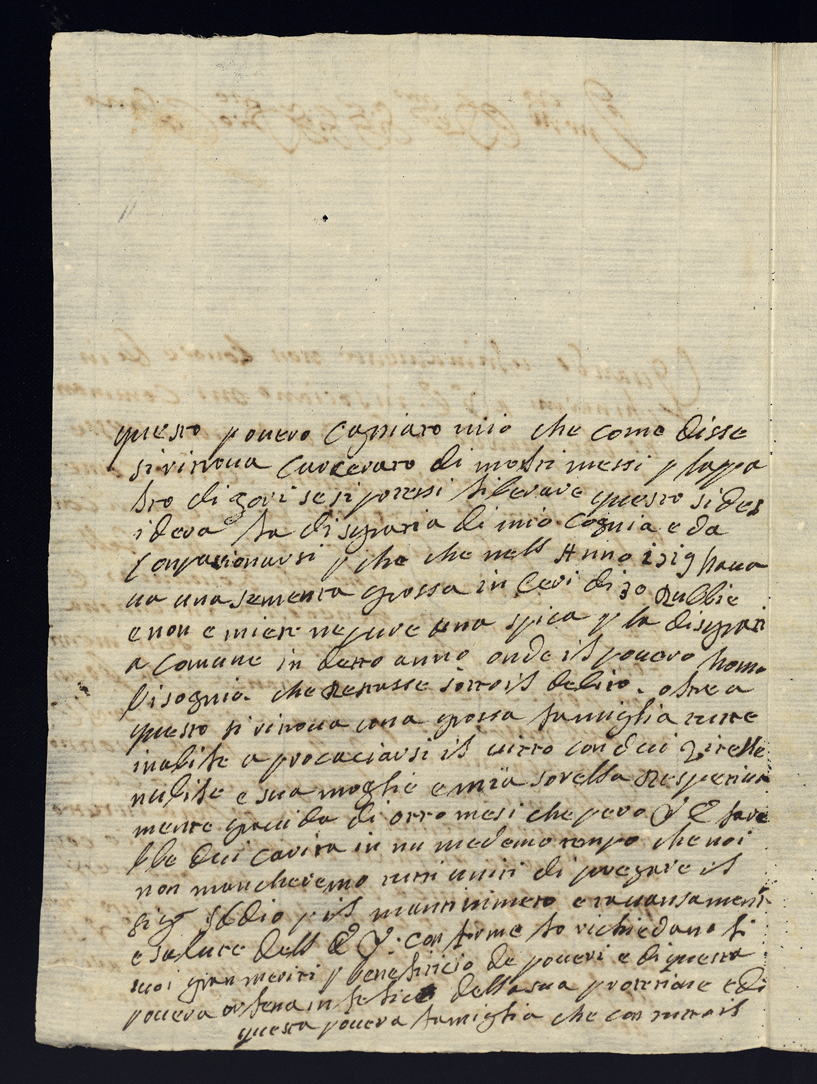 questo povero Cogniato mio che come disse
si ritrova Carcerato di nostri messi p lappa
tro di zovi se si potessi liberare questo si des
idera la disgratia di mio Cognia e da
Conpasionarsi p che che nell Anno 1719 haue
ua una sementa grossa in Ceri di 30 Rubbie
e non e miete nepure una spica p la disgrati
a comune in detto anno onde il povero homo
bisognia che Restasse sotto il debito. oltre a
questo si ritrova una grossa famiglia tutte
inabile a procaciarsi il vitto con dui Zitelle
nubile e sua moglie e mia sorella Respetiua
mente gravida di otto mesi che pero V E fare
bbe dui Carita in nu medemo tenpo che noi
non mancheremo tutti uniti di pregare il
Iddio p il mantinimeto e
e Salute dell E V. conforme lo richiedano li
suoi gran meriti p beneficio de poveri e di questa
povera della sua protetione e di
questa povera famiglia che con tutto il